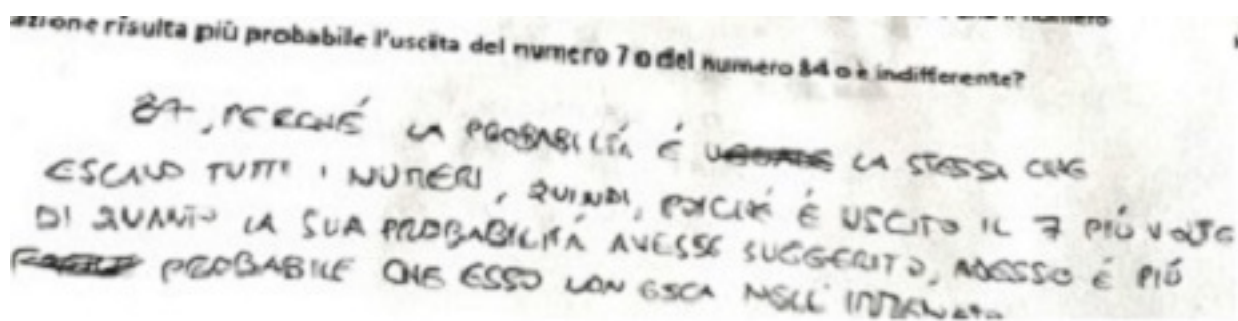 numero
azione risulta più probabile l'uscita del numero 7 o del numero 84 o è indifferente?
84, PERCHÉ LA PROBABILITÁ É UGUALE LA STESSA CHE
ESCANO TUTTI I NUMERI, QUINDI, POICHÉ É USCITO IL 7 PIÚ VOLTE
DI QUANTO LA SUA PROBABILITÁ AVESSE SUGGERITO, ADESSO É PIÚ
PROBABILE CHE ESSO NON ESCA NELL'IMMEDIATO